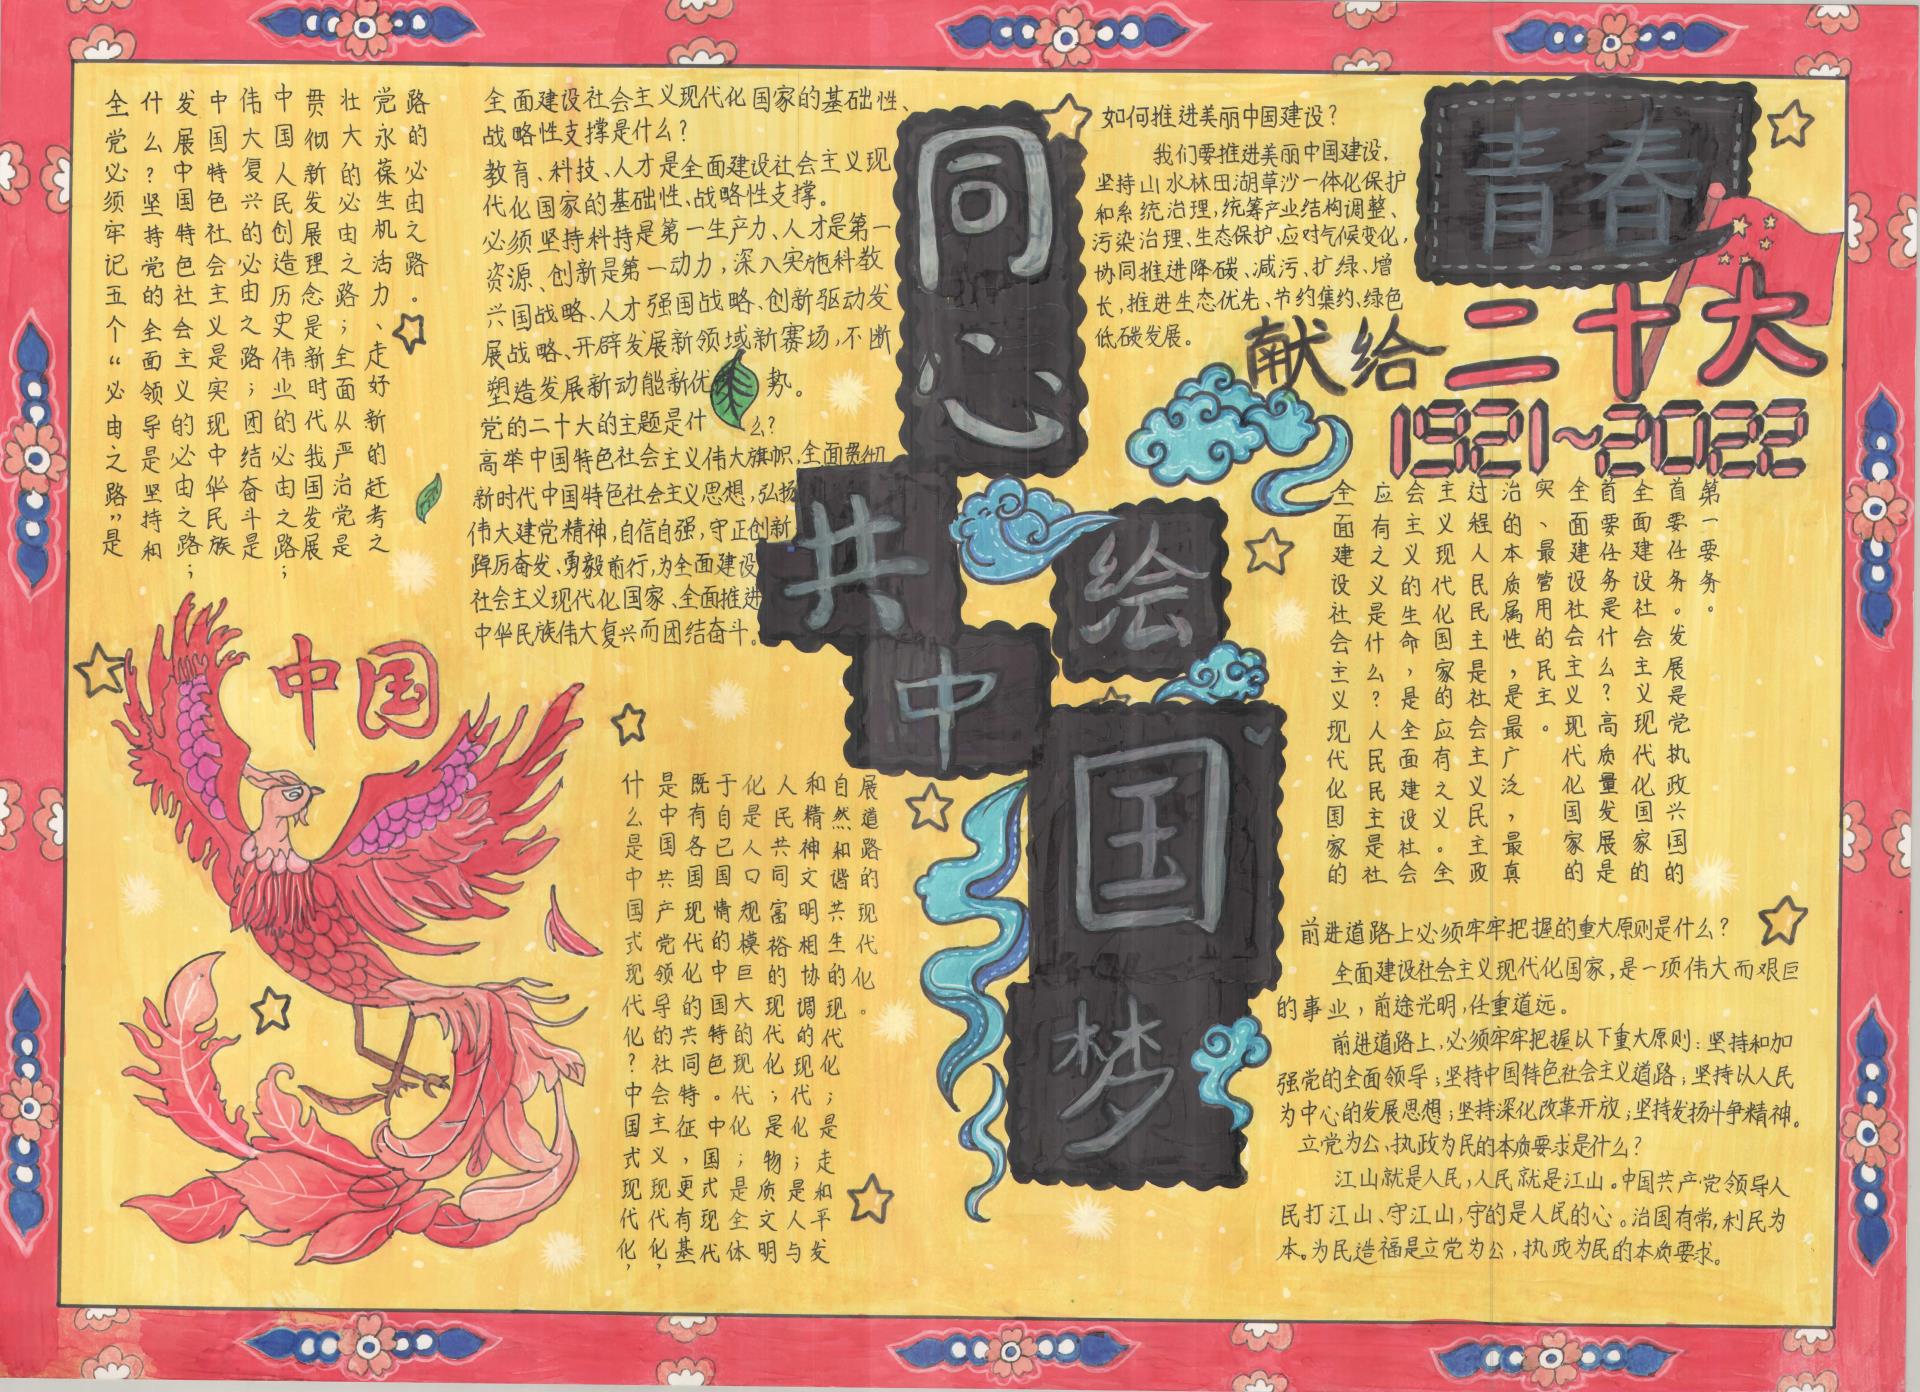 全党必须牢记五个“必由之路”是
什么?坚持党的全面领导是坚持和
发展中国特色社会主义的必由之路;
中国特色社会主义是实现中华民族
伟大复兴的必由之路;团结奋斗是
中国人民创造历史伟业的必由之路;
贯彻新发展理念是新时代我国发展
壮大的必由之路;全面从严治党是
党永葆生机活力、走好新的赶考之
路的必由之路。
全面建设社会主义现代化国家的基础性、
战略性支撑是什么?
教育、科技、人才是全面建设社会主义现
代化国家的基础性、战略性支撑。
必须坚持科持是第一生产力、人才是第一
资源、创新是第一动力,深入实施科教
兴国战略、人才强国战略、创新驱动发
展战略、开辟发展新领域新赛场,不断
塑造发展新动能新优势。
党的二十大的主题是什么?
高举中国特色社会主义伟大旗帜,全面贯彻
新时代中国特色社会主义思想,弘扬
伟大建党精神,自信自强,守正创新
踔厉奋发、勇毅前行,为全面建设
社会主义现代化国家、全面推进
中华民族伟大复兴而团结奋斗。
同心
共绘
中国梦
如何推进美丽中国建设?
我们要推进美丽中国建设,
坚持山水林田湖草沙一体化保护
和系统治理,统筹产业结构调整、
污染治理、生态保护,应对气候变化,
协同推进降碳、减污、扩绿、增
长,推进生态优先、节约集约、绿色
低碳发展。
青春
献给二十大
1921~2022
全面建设社会主义现代化国家的
应有之义是什么?人民民主是社
会主义的生命,是全面建设社会
主义现代化国家的应有之义。全
过程人民民主是社会主义民主政
治的本质属性,是最广泛,最真
实、最管用的民主。
全面建设社会主义现代化国家的
首要任务是什么?高质量发展是
全面建设社会主义现代化国家的
首要任务。发展是党执政兴国的
第一要务。
中国
什么是中国式现代化?中国式现代化,
是中国共产党领导的社会主义现代化,
既有各国现代化的共同特征,更有基
于自己国情的中国特色。中国式现代
化是人口规模巨大的现代化;是全体
人民共同富裕的现代化;是物质文明
和精神文明相协调的现代化;是人与
自然和谐共生的现代化;是走和平发
展道路的现代化。
前进道路上必须牢牢把握的重大原则是什么?
全面建设社会主义现代化国家,是一项伟大而艰巨
的事业,前途光明,任重道远。
前进道路上,必须牢牢把握以下重大原则:坚持和加
强党的全面领导;坚持中国特色社会主义道路;坚持以人民
为中心的发展思想;坚持深化改革开放;坚持发扬斗争精神。
立党为公、执政为民的本质要求是什么?
江山就是人民,人民就是江山。中国共产党领导人
民打江山、守江山,守的是人民的心。治国有常,利民为
本。为民造福是立党为公,执政为民的本质要求。